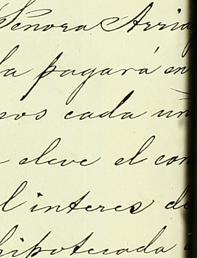 Señora Arria
la pagará en
nos cada un
eleve el con
l interes de
hipotecada